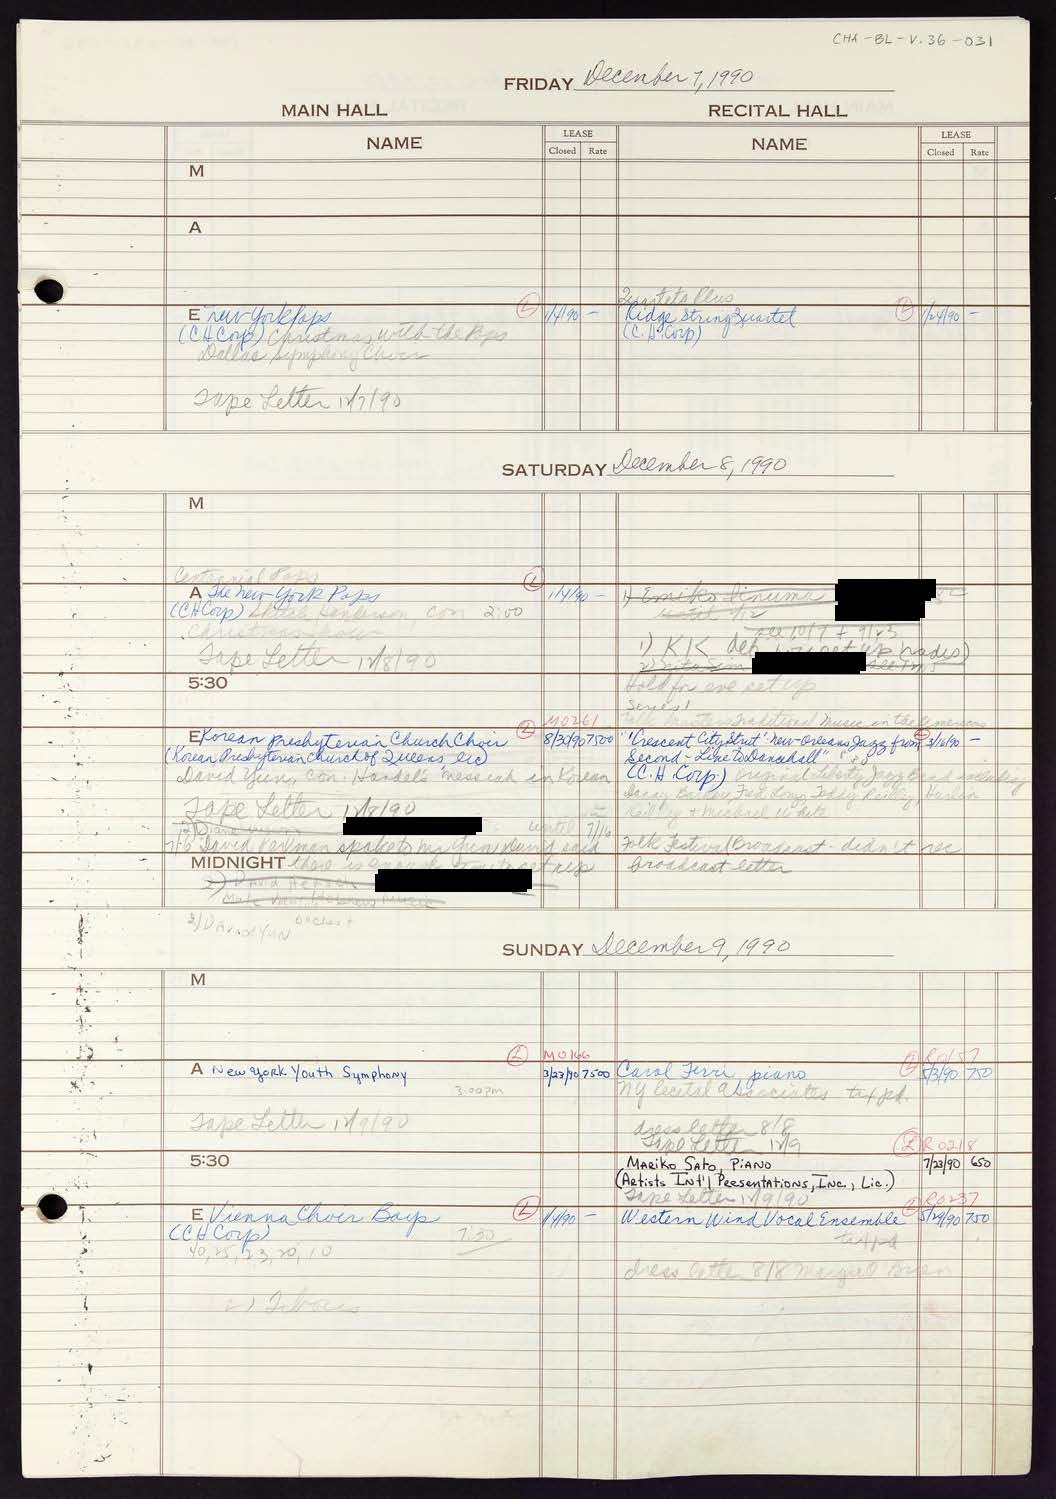 CHA-BL-V.36-031
FRIDAY December 7, 1990
MAIN HALL
RECITAL HALL
NAME
LEASE
Closed Rate
NAME
LEASE
Closed Rate
M
A
E New York Pops
(CH Corp) Christmas with the Pops
Dallas Symphony Choir
L
1/4/90 -
Tape Letter 12/7/90
Quartets Plus
Ridge String Quartet
(C.H. Corp)
L
1/24/90 -
SATURDAY December 8, 1990
M
Centennial Pops
A The New York Pops
(CH Corp) Skitch Henderson, con 2:00
Christmas Show
Tape Letter 12/8/90
L
1/4/90 -
1) Emiko Iinuma
until 1/12
see 10/7 + 9/23
1) KK
2)
5:30
Hold for eve set up
Series I
Folk Masters Traditional Music in the Americas
E Korean Presbyterian Church Choir
(Korean Presbyterian Church of Queens, Lic)
David Yun, con. Handel's Messiah in Korean
L
M0261
8/30/90 7500
Tape Letter 12/8/90
until 7/16
7/6 David Parkman spoke to Mr. Yun David said
MIDNIGHT there is enough time to set up
2) David
3) David Yun
"Crescent City Strut" New Orleans Jazz from
Second-Line to Dancehall"
(C.H. Corp) Original Liberty Jazz Band including
Danny Barker, Fred Long, Teddy Reiley, Herlin
Reiley + Michael White
3/10/90 -
Folk Festival Broadcast - didn't rec
broadcast letter
SUNDAY December 9, 1990
M
A New York Youth Symphony
3:00pm
L
M0166
3/23/90 7500
Tape Letter 12/9/90
Carol Ferri, piano
NY Recital Associates txf pd.
L
R0157
5/3/90 750
dress letter 8/8
Tape Letter 12/9
5:30
Mariko Sato, Piano
(Artists Int'l Presentations, Inc., Lic.)
Tape Letter 12/9/90
L
R0218
7/23/90 650
E Vienna Choir Boys
(CH Corp)
7:30
40, 25, 23, 20, 10
L
1/4/90 -
Western Wind Vocal Ensemble
txf pd
L
R0237
5/29/90 750
dress letter 8/8
2)